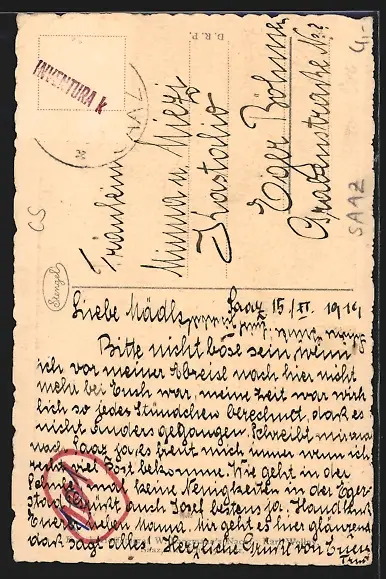 D. R. P.
INVENTURA k
SAAZ
CS
Stengel
Fräulein
Minna u. Mizzi
Kastalio
Eger Böhmen
Grabenstrasse No.
SAAZ
Liebe Mädls Saaz 15/II. 19
Bitte nicht böse sein, wenn
ich vor meiner Abreise nach hier nicht
mehr bei Euch war, meine Zeit war wirk
lich so jedes Stündchen berechnet, daß es
nicht anders gegangen. Schreibt mir
nach Saaz ja, es freut mich immer wenn ich
recht viel Post bekomme. Wie geht in der
keine Neuigkeiten in der Eger
auch Josef bestens ja. Handkuß
Euerer lieben Mama. Mir geht es hier glänzend
daß sagt alles. Herzliche Grüße von Euer